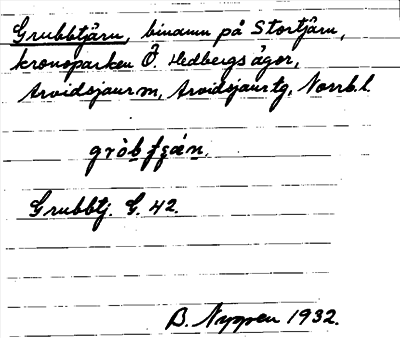 Grubbtjärn, binamn på Stortjärn,
kronoparken Ö. Hedbergs ägor,
Arvidsjaur sn, Arvidsjaur tg, Norrb. l.
Grubbtj. G. 42.
B. Nyppen 1932.